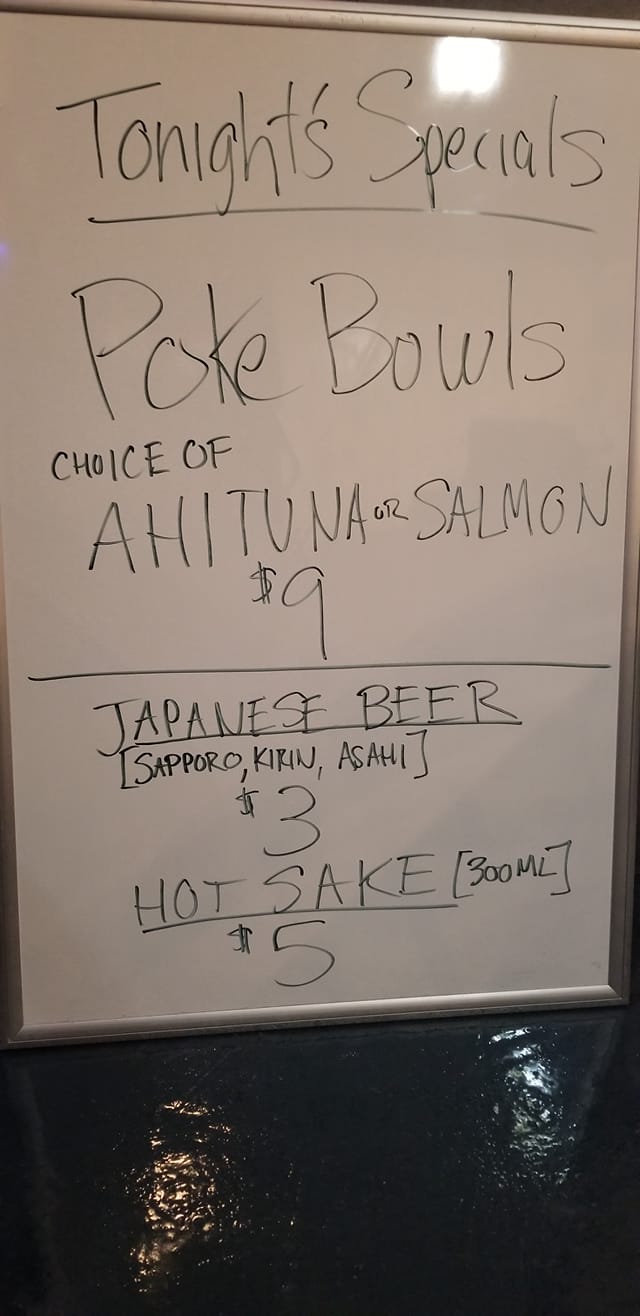 Tonight's Specials
Poke Bowls
CHOICE OF
AHI TUNA OR SALMON
$9
JAPANESE BEER
[SAPPORO, KIRIN, ASAHI]
$3
HOT SAKE [300ML]
$5